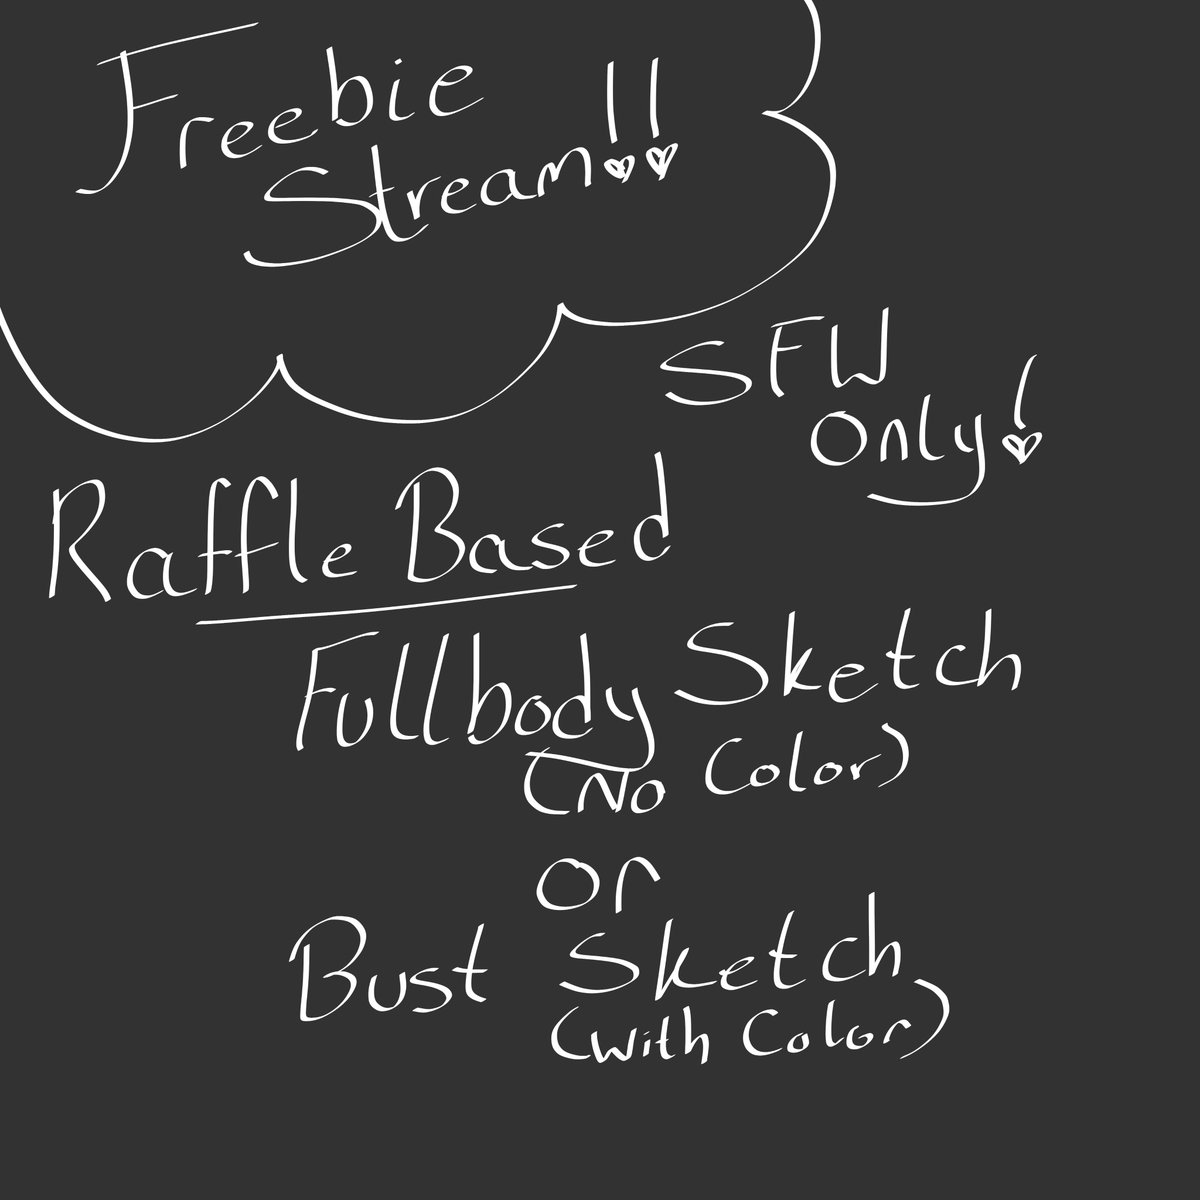 Freebie
Stream!!
SFW
Only!
Raffle Based
Fullbody Sketch
(No Color)
or
Bust Sketch
(With Color)